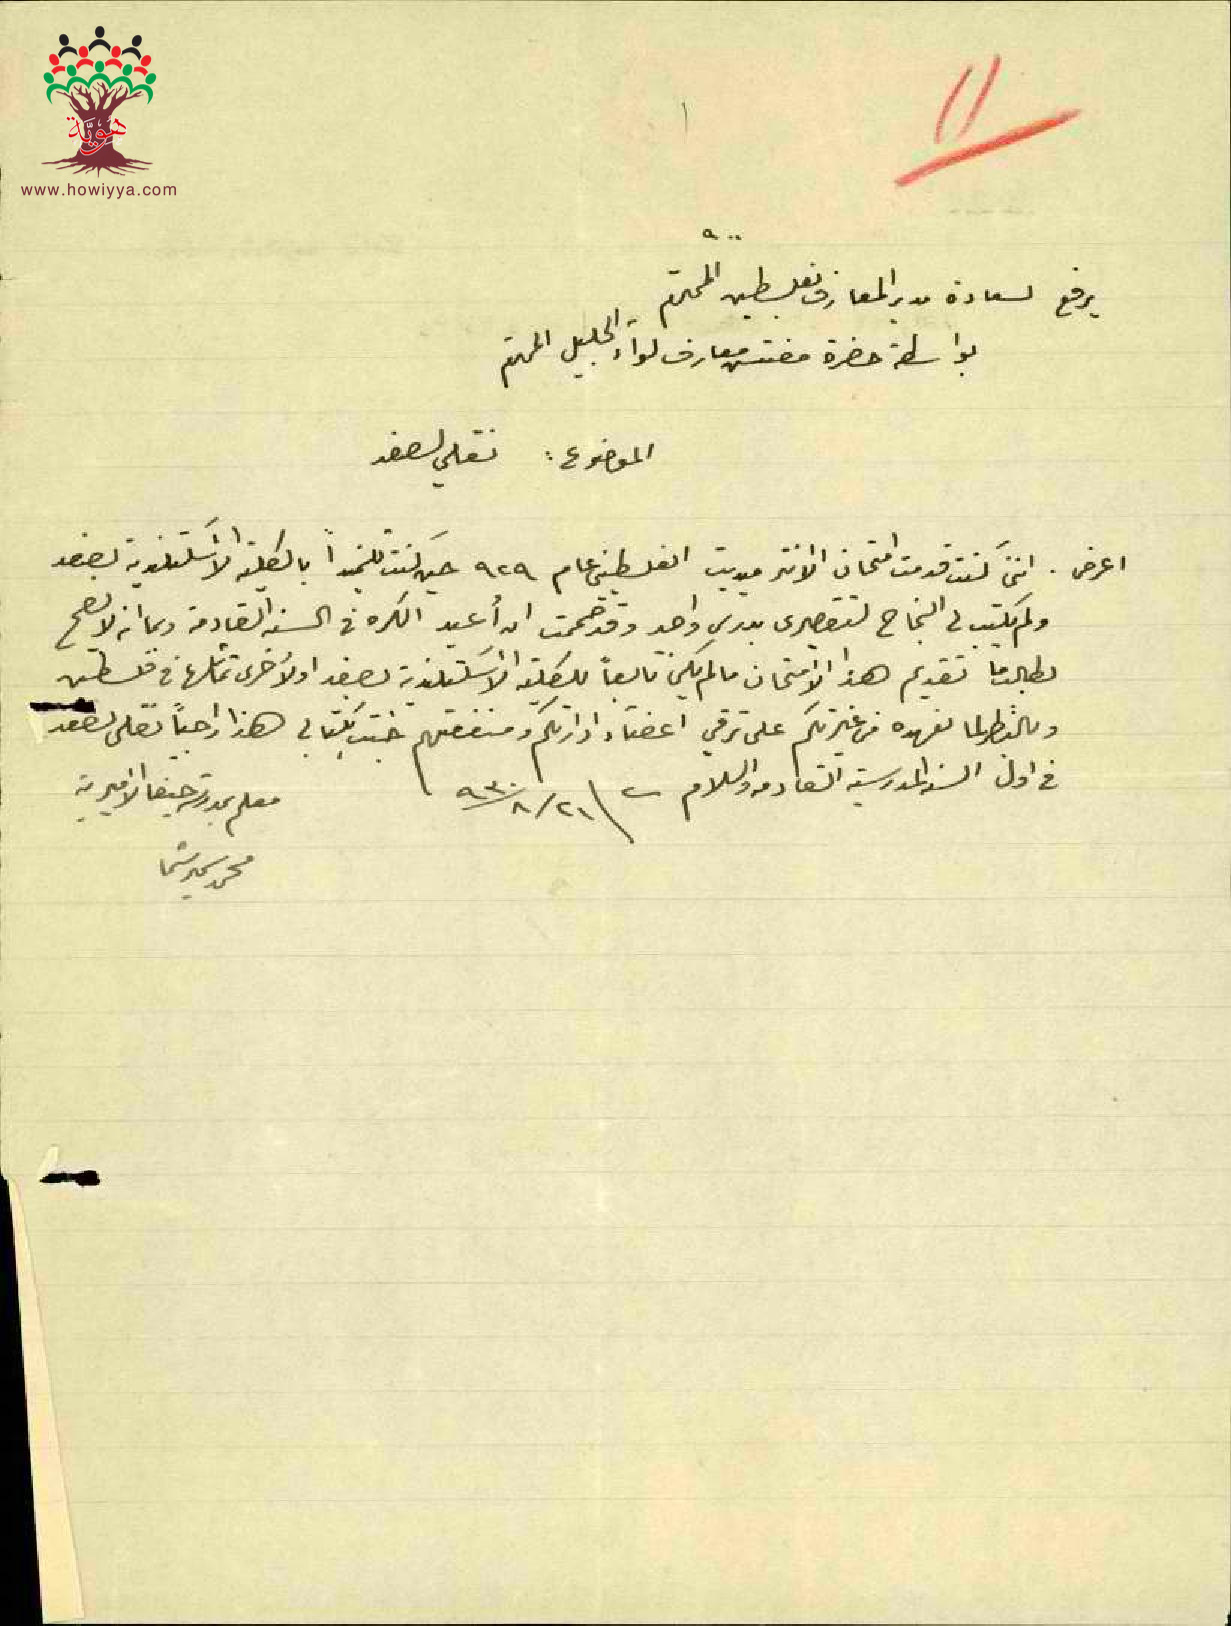 هويّة
www.howiyya.com
١١
١
٩٠٠
يرفع لسعادة مدير المعارف بفلسطين المحترم
بواسطة حضرة مفتش معارف لواء الجليل المحترم
الموضوع: نقلي لصفد
اعرض. انني كنت قدمت امتحان الانترميديت الفلسطيني عام ٩٢٩ حين كنت تلميذاً بالكلية الاسكتلندية بصفد
ولم يكتب لي النجاح لتقصيري بدرس واحد وقد صممت ان أعيد الكره في السنه القادمة وبما انه لا يصح
لطالب ما تقديم هذا الامتحان ما لم يكن تابعاً للكلية الاسكتلندية بصفد او لأخرى تماثلها في فلسطين
وبالنظر لما نعهده من غيرتكم على ترقي اعضاء ادارتكم ومنفعتهم جئت بكتابي هذا راجياً نقلي لصفد
في اول السنه المدرسية القادمه والسلام ٢١/٨/٩٣٠
معلم بمدرسة حيفا الاميرية
محمد سمير شما